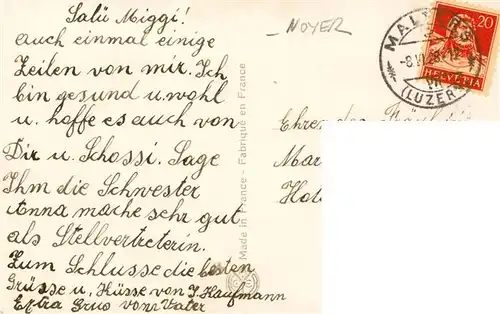 Salü Miggi!
auch einmal einige
Zeilen von mir. Ich
bin gesund u. wohl
u. hoffe es auch von
Dir u. Schossi. Sage
Ihm die Schwester
Anna mache sehr gut
als Stellvertreterin.
Zum Schlusse die besten
Grüsse u. Küsse von J. Kaufmann
Extra Grus vom Vater
NOYER
Made in France - Fabriqué en France
MALTERS
(LUZERN)
20
HELVETIA
Mar
Hot